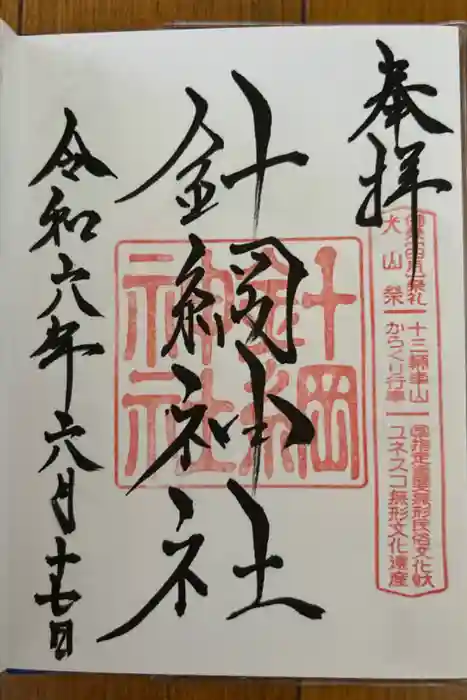 奉拝
犬山祭
十三輌車山
からくり行事
国指定重要無形民俗文化財
ユネスコ無形文化遺産
針綱神社
針綱神社
令和六年六月十七日